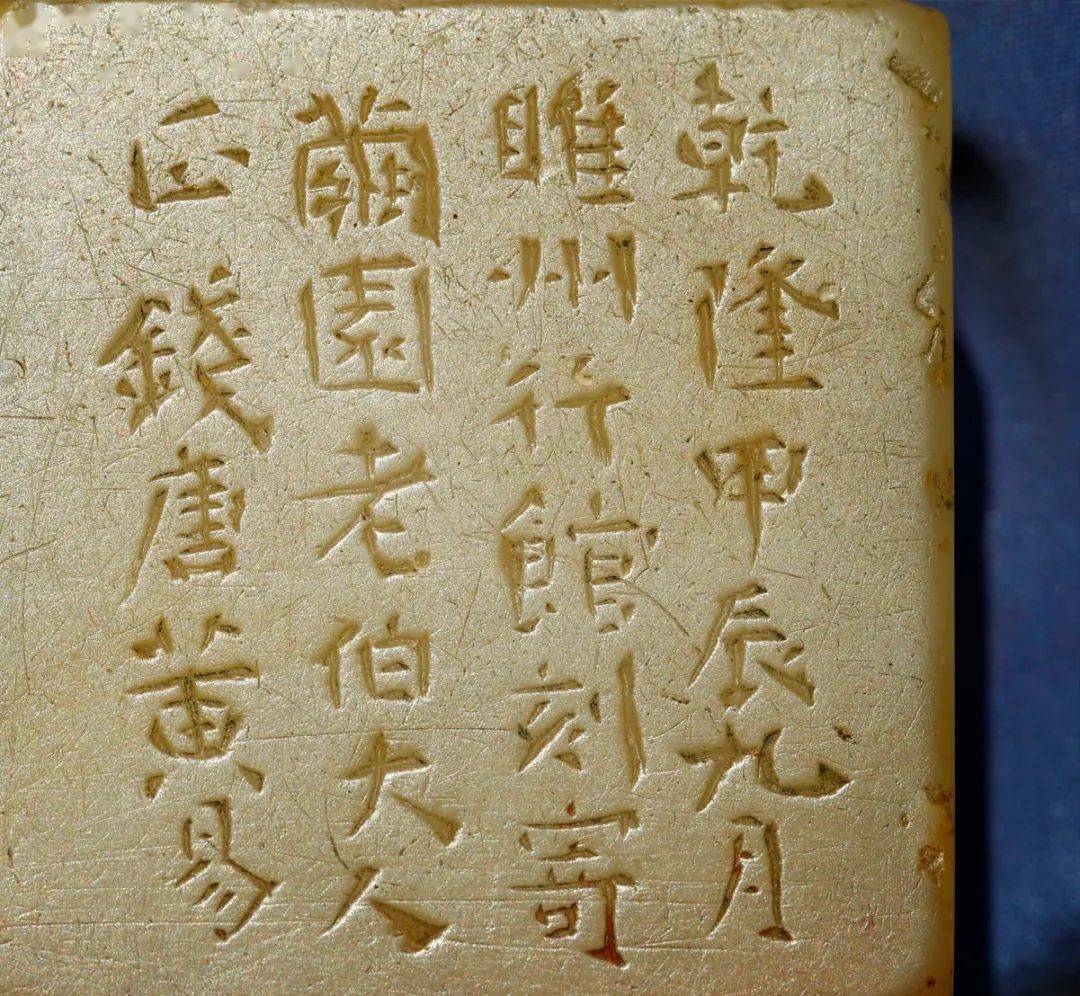 乾隆甲辰九月
睢州行館刻寄
繭園老伯大人
正錢唐黄易